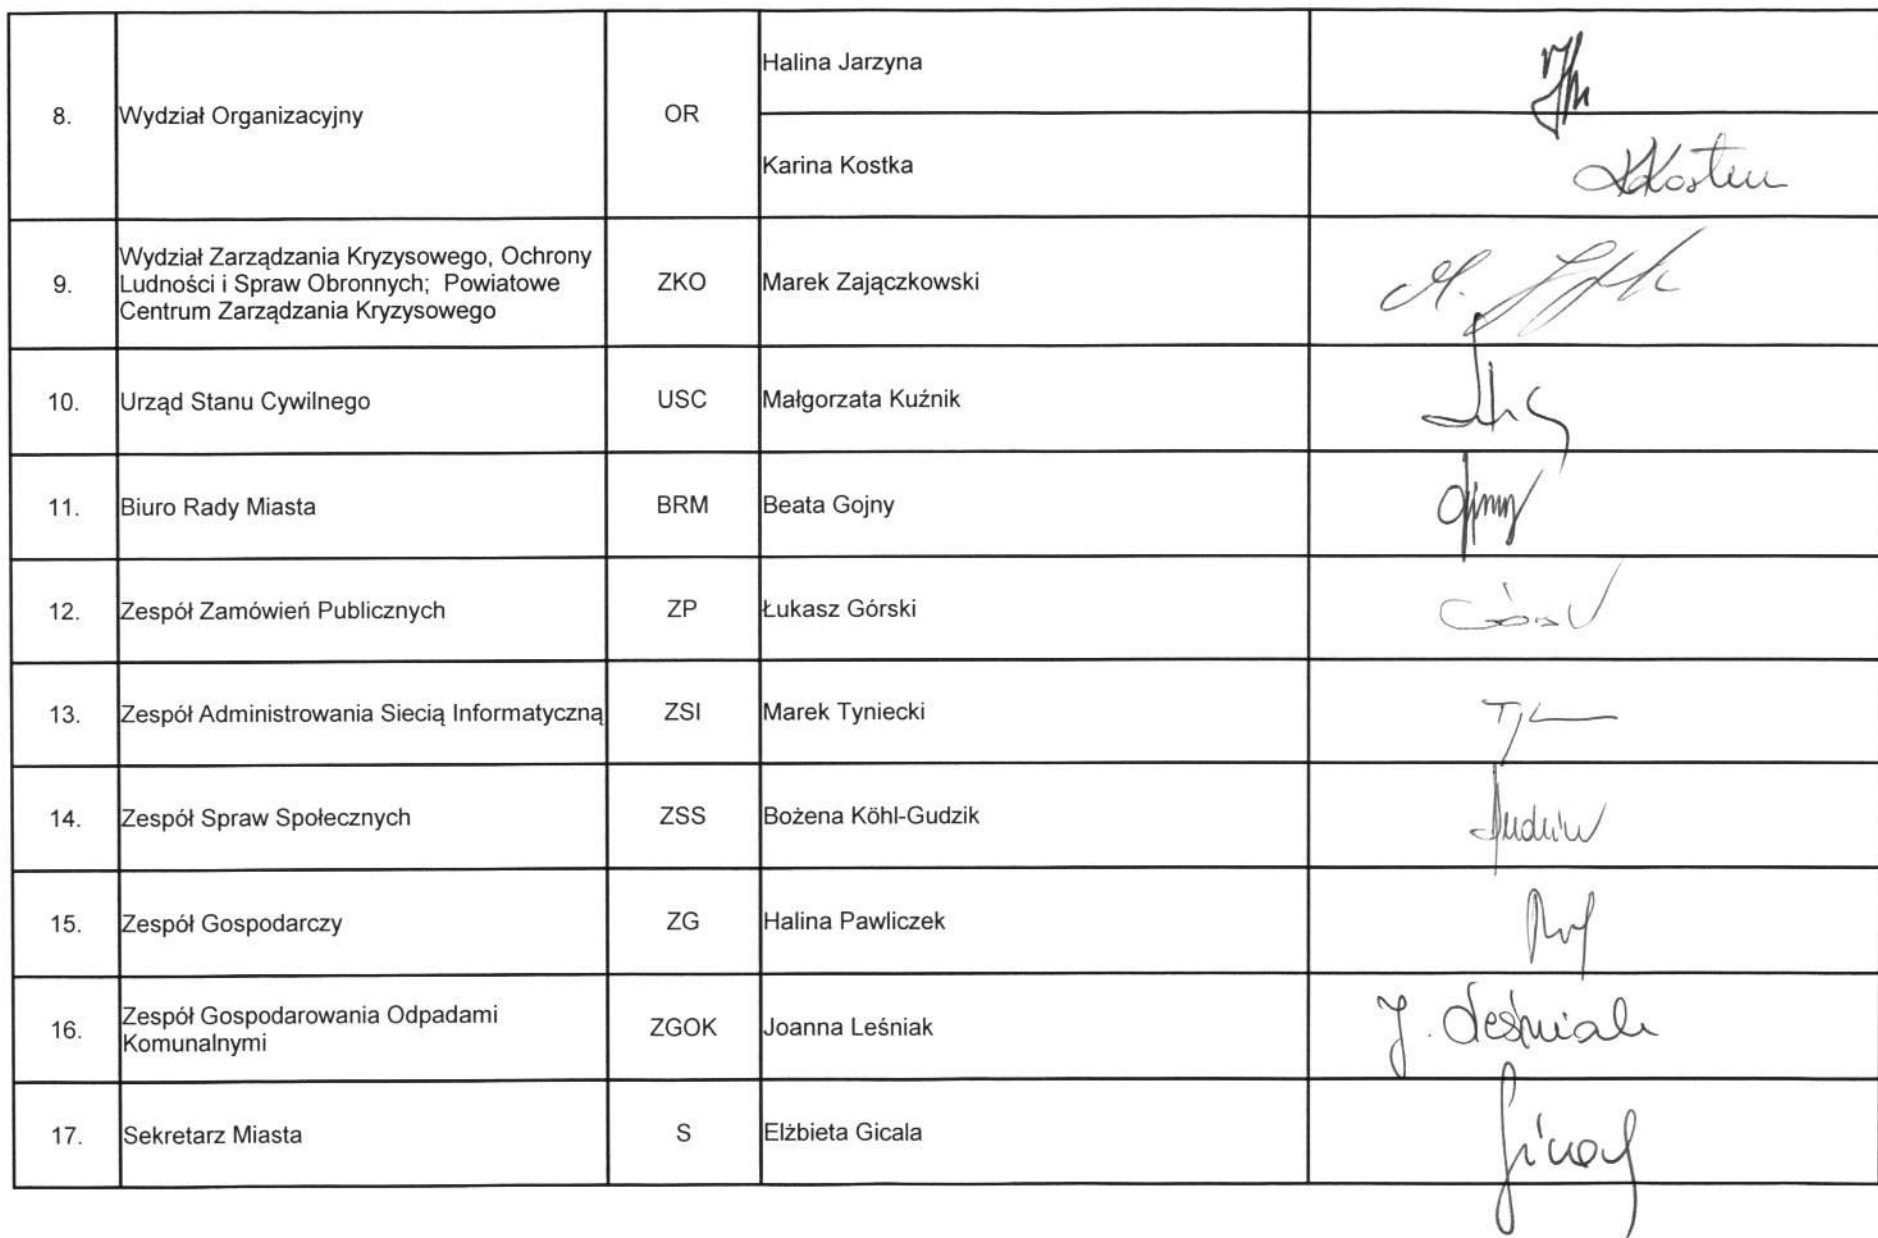 8.
Wydział Organizacyjny
OR
Halina Jarzyna
Karina Kostka
KKostka
9.
Wydział Zarządzania Kryzysowego, Ochrony
Ludności i Spraw Obronnych; Powiatowe
Centrum Zarządzania Kryzysowego
ZKO
Marek Zajączkowski
M.
10.
Urząd Stanu Cywilnego
USC
Małgorzata Kuźnik
11.
Biuro Rady Miasta
BRM
Beata Gojny
12.
Zespół Zamówień Publicznych
ZP
Łukasz Górski
13.
Zespół Administrowania Siecią Informatyczną
ZSI
Marek Tyniecki
14.
Zespół Spraw Społecznych
ZSS
Bożena Köhl-Gudzik
15.
Zespół Gospodarczy
ZG
Halina Pawliczek
16.
Zespół Gospodarowania Odpadami
Komunalnymi
ZGOK
Joanna Leśniak
J. Leśniak
17.
Sekretarz Miasta
S
Elżbieta Gicala